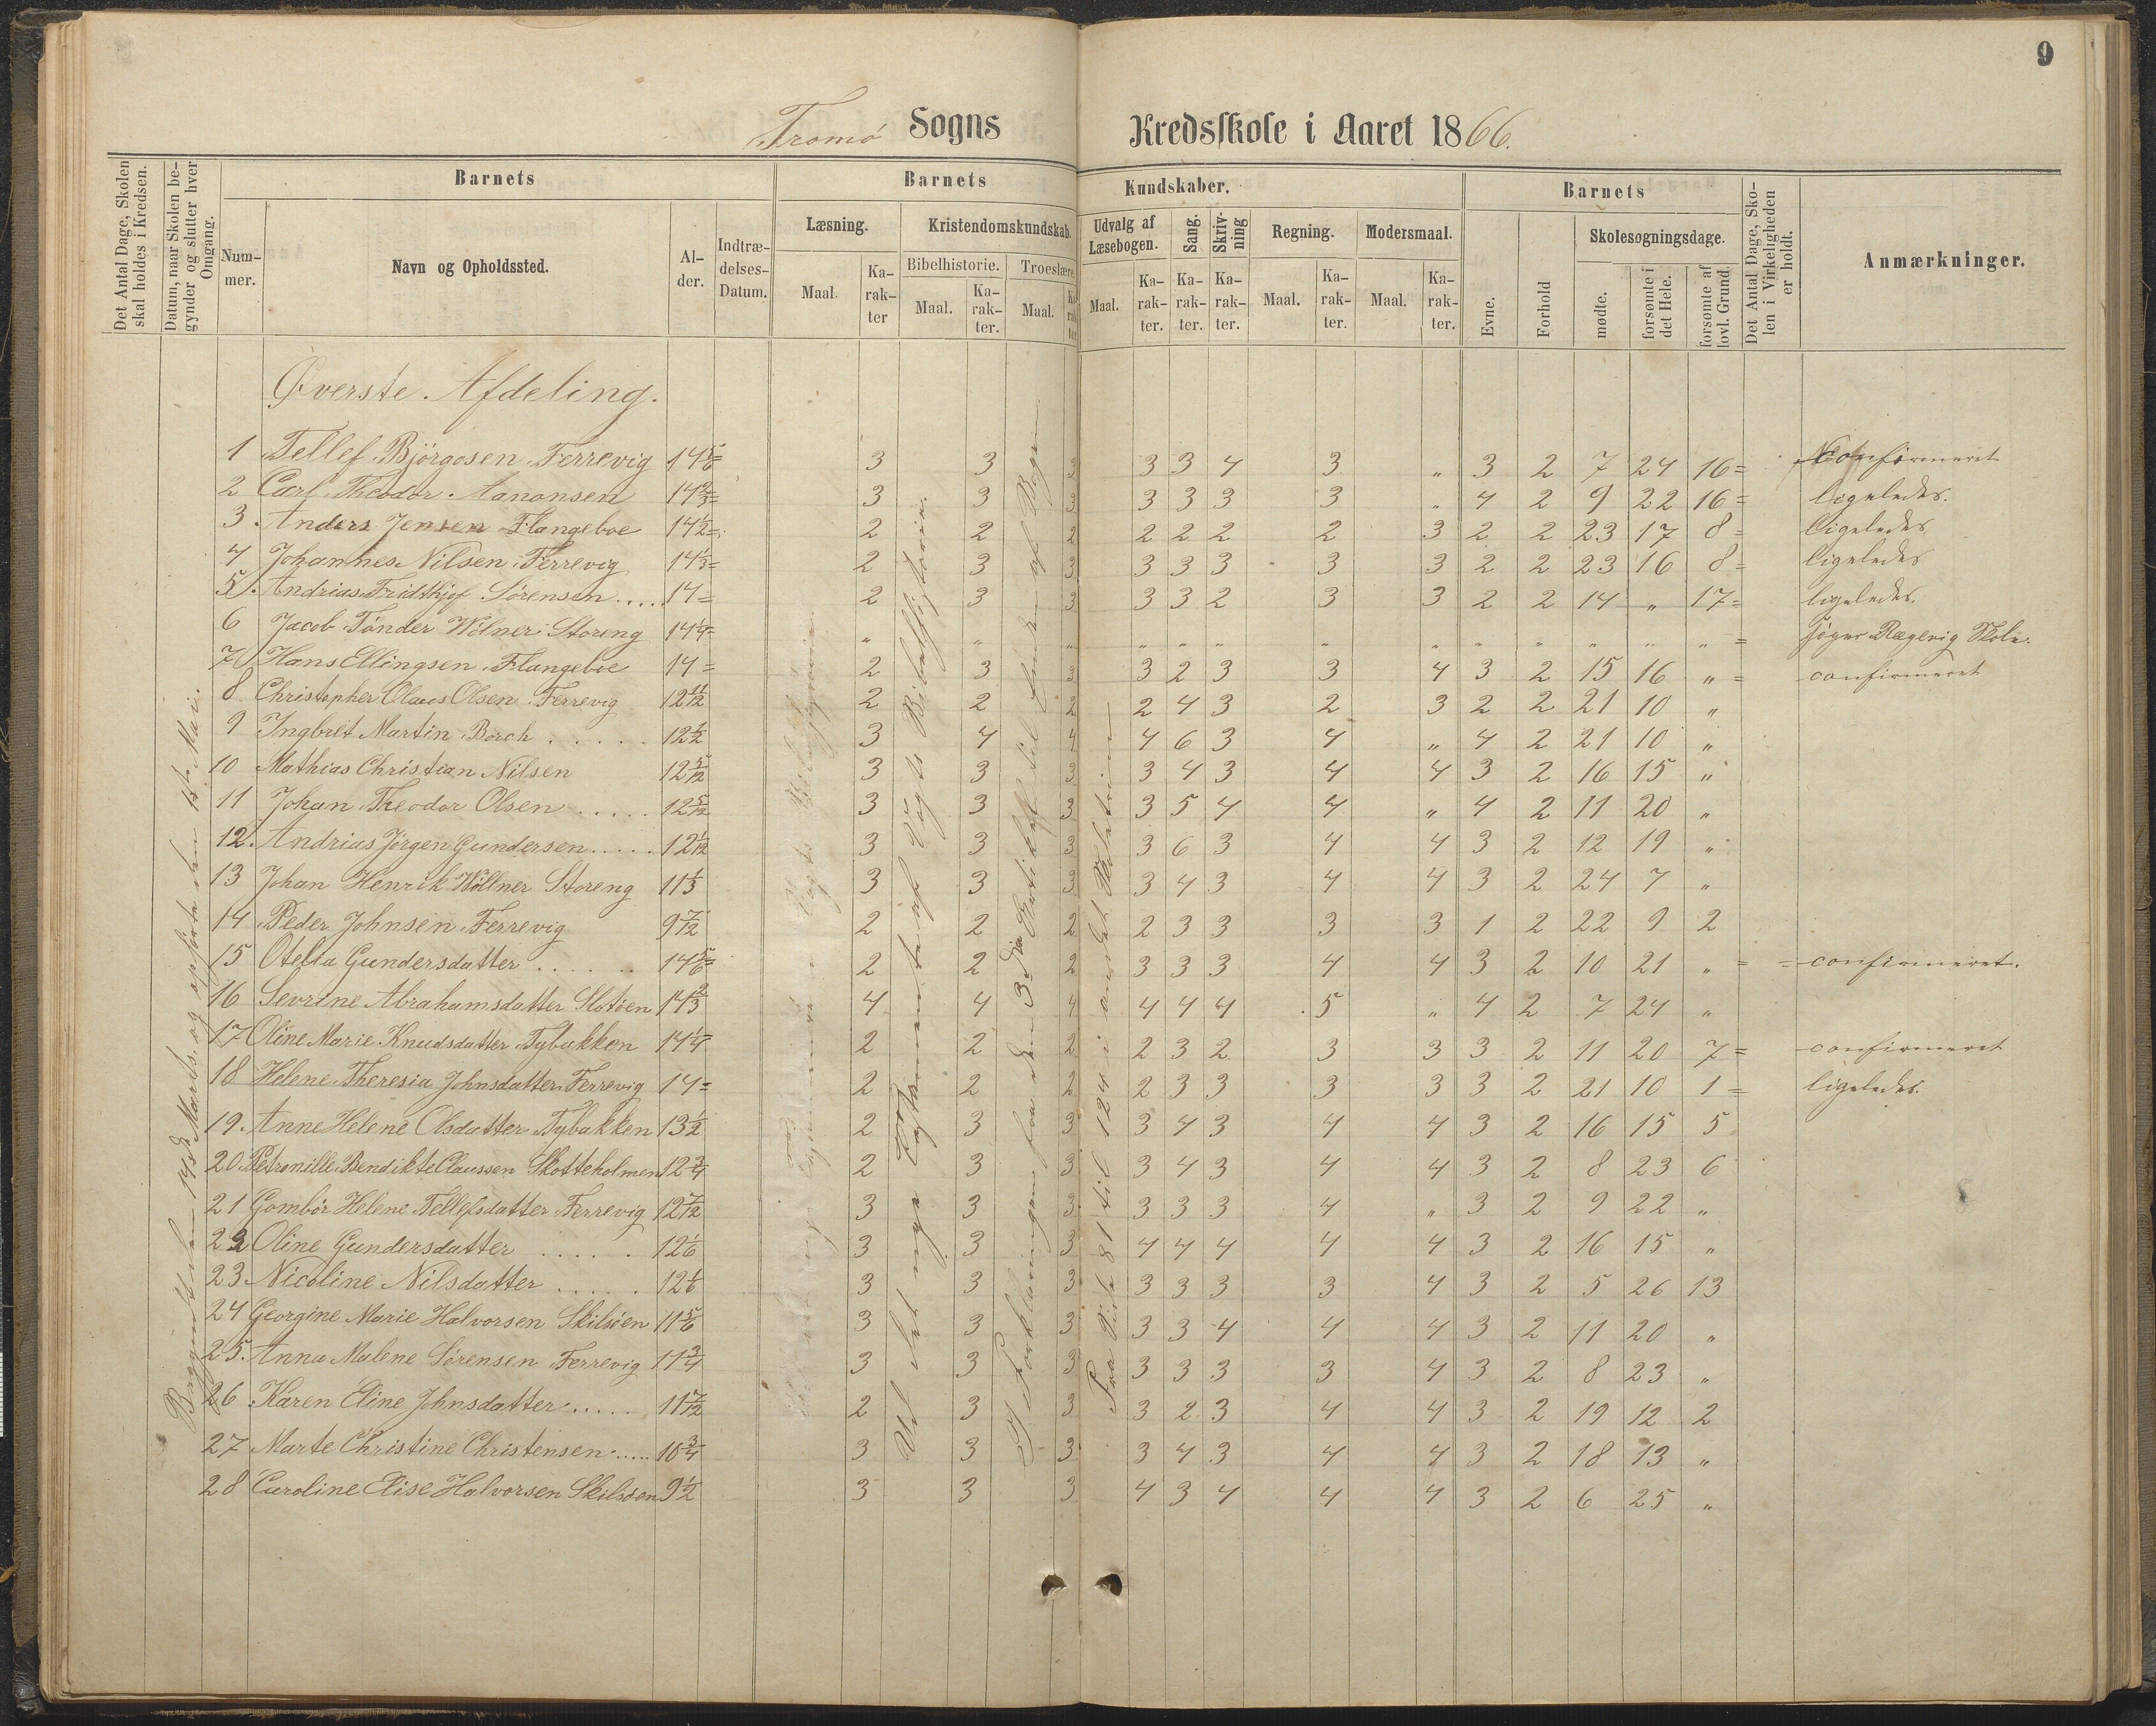 9
Tromö Sogns Kredsskole i Aaret 1866.
Det Antal Dage, Skolen skal holdes i Kredsen.
Datum, naar Skolen begynder og slutter hver Omgang.
Barnets
Nummer.
Navn og Opholdssted.
Alder.
Indtrædelses-Datum.
Barnets Kundskaber.
Læsning.
Maal. Karakter
Kristendomskundskab.
Bibelhistorie. Troeslære.
Maal. Karakter. Maal. Karakter
Udvalg af Læsebogen.
Maal. Karakter.
Sang. Karakter.
Skrivning Karakter.
Regning.
Maal. Karakter.
Modersmaal.
Maal. Karakter.
Barnets
Evne.
Forhold
Skolesøgningsdage.
mødte.
forsømte i det Hele.
forsømte af lovl. Grund.
Det Antal Dage, Skolen i Virkeligheden er holdt.
Anmærkninger.
Øverste Afdeling.
1 Tellef Bjørgosen Færrevig 14 5/6= 3 3 3 3 3 4 3 „ 3 2 7 24 16= Confirmeret
2 Carl Theodor Aanonsen 14 2/3= 3 3 3 3 3 3 3 „ 4 2 9 22 16= ligeledes.
3. Anders Jensen Flangeboe 14 1/2= 2 2 2 2 2 2 2 3 2 2 23 17 8= ligeledes
4 Johannes Nilsen Færrevig 14 1/3= 2 3 3 3 3 3 3 3 2 2 23 16 8= ligeledes
5. Andrias Fridthjof Sørensen..... 14= 2 3 3 3 3 2 3 3 2 2 14 „ 17= ligeledes.
6 Jacob Tönder Wölner Storeng 14 1/4= „ „ „ „ „ „ „ „ „ „ „ „ „ = søger Rægevig Skole.
7 Hans Ellingsen Flangeboe 14= 2 3 3 3 2 3 3 4 3 2 15 16 „ = confirmeret
8 Christopher Olaus Olsen Færrevig 12 11/12 2 2 2 2 4 3 2 3 2 2 21 10 „
9 Ingbret Martin Borch ..... 12 1/2 3 4 4 4 6 3 4 „ 4 2 21 10 „
10 Mathias Christian Nilsen 12 5/12 3 3 3 3 4 3 4 4 3 2 16 15 „
11 Johan Theodor Olsen ..... 12 5/12 3 3 3 3 5 4 4 „ 4 2 11 20 „
12. Andrias Jörgen Gundersen..... 12 1/12 3 3 3 3 6 3 4 4 3 2 12 19 „
13 Johan Henrik Wöllner Storeng 11 1/3 3 3 3 3 4 3 4 4 3 2 24 7 „
14 Peder Johnsen Færrevig 9 7/12 2 2 2 2 3 3 3 3 1 2 22 9 2
15 Otelia Gundersdatter ...... 14 5/6= 2 2 2 3 3 3 4 4 3 2 10 21 „ = = confirmeret.
16 Sevrine Abrahamsdatter Slotöen 14 2/3 4 4 4 4 4 4 5 „ 4 2 7 24 „
17 Oline Marie Knudsdatter Tybakken 14 1/4= 2 2 2 2 3 2 3 3 3 2 11 20 7= confirmeret
18 Helene Theresia Johnsdatter Færrevig 14= 2 2 2 2 3 3 3 3 3 2 21 10 1= ligeledes.
19. Anne Helene Olsdatter Tybakken 13 1/2 2 3 3 3 4 3 4 4 3 2 16 15 5
20. Petronille Bendikte Claussen Skotteholmen 12 3/4 2 3 3 3 4 3 4 4 3 2 8 23 6
21 Gombör Helene Tellefsdatter Færrevig 12 7/12 3 3 3 3 3 3 4 „ 3 2 9 22 „
22 Oline Gundersdatter ..... 12 1/6 3 3 3 4 4 4 4 4 3 2 16 15 „
23 Nicoline Nilsdatter ..... 12 1/6 3 3 3 3 3 3 3 4 3 2 5 26 13
24 Georgine Marie Halvorsen Skilsöen 11 5/6 3 3 3 3 3 4 4 4 3 2 11 20 „
25. Anna Malene Sörensen Færrevig 11 3/4 3 3 3 3 3 3 3 4 3 2 8 23 „
26 Karen Eline Johnsdatter..... 11 7/12 2 3 3 3 2 3 4 4 3 2 19 12 2
27 Marte Christine Christensen..... 10 3/4 3 3 3 3 4 3 4 4 3 2 18 13 „
28 Caroline Elise Halvorsen Skilsöen 9 1/2 3 3 3 4 3 4 4 4 3 2 6 25 „
Begyndt den 14de Marts og ophörte den 15de Mai.
Ud det nye Testamente af Vogts Bibelhistorie.
I Forklaringen fra den 3die Artikel til Enden af Bogen
Fra Side 81 til 124 i andet Skoletrin